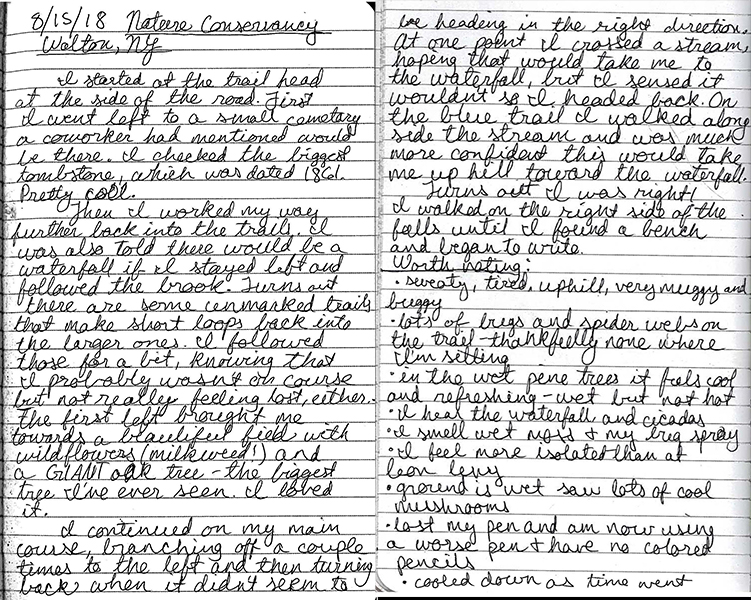 8/15/18 Nature Conservancy
Walton, NY
I started at the trail head
at the side of the road. First
I went left to a small cemetary
a coworker had mentioned would
be there. I checked the biggest
tombstone, which was dated 1861.
Pretty cool.
Then I worked my way
further back into the trails. I
was also told there would be a
waterfall if I stayed left and
followed the brook. Turns out
there are some unmarked trails
that make short loops back into
the larger ones. I followed
those for a bit, knowing that
I probably wasn't on course
but not really feeling lost, either.
The first left brought me
towards a beautiful field with
wildflowers (milkweed!) and
a GIANT oak tree - the biggest
tree I've ever seen. I loved
it.
I continued on my main
course, branching off a couple
times to the left and then turning
back when it didn't seem to
be heading in the right direction.
At one point I crossed a stream,
hoping that would take me to
the waterfall, but I sensed it
wouldn't so I headed back. On
the blue trail I walked along
side the stream and was much
more confident this would take
me up hill toward the waterfall.
Turns out I was right!
I walked on the right side of the
falls until I found a bench
and began to write.
Worth noting:
• sweaty, tired, uphill, very muggy and
buggy
• lots of bugs and spider webs on
the trail - thankfully none where
I'm sitting
• in the wet pine trees it feels cool
and refreshing - wet but not hot
• I hear the waterfall and cicadas
• I smell wet moss & my bug spray
• I feel more isolated than at
leon levy
• ground is wet saw lots of cool
mushrooms
• lost my pen and am now using
a worse pen & have no colored
pencils
• cooled down as time went